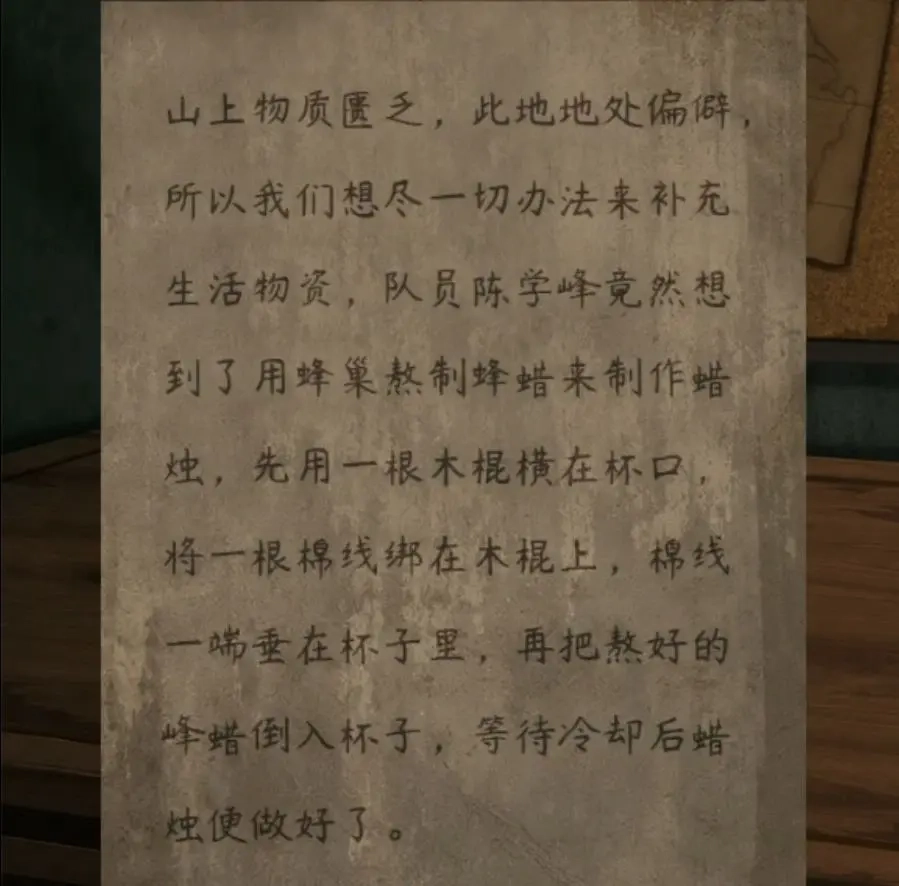 山上物质匮乏，此地地处偏僻，
所以我们想尽一切办法来补充
生活物资，队员陈学峰竟然想
到了用蜂巢熬制蜂蜡来制作蜡
烛，先用一根木棍横在杯口，
将一根棉线绑在木棍上，棉线
一端垂在杯子里，再把熬好的
峰蜡倒入杯子，等待冷却后蜡
烛便做好了。